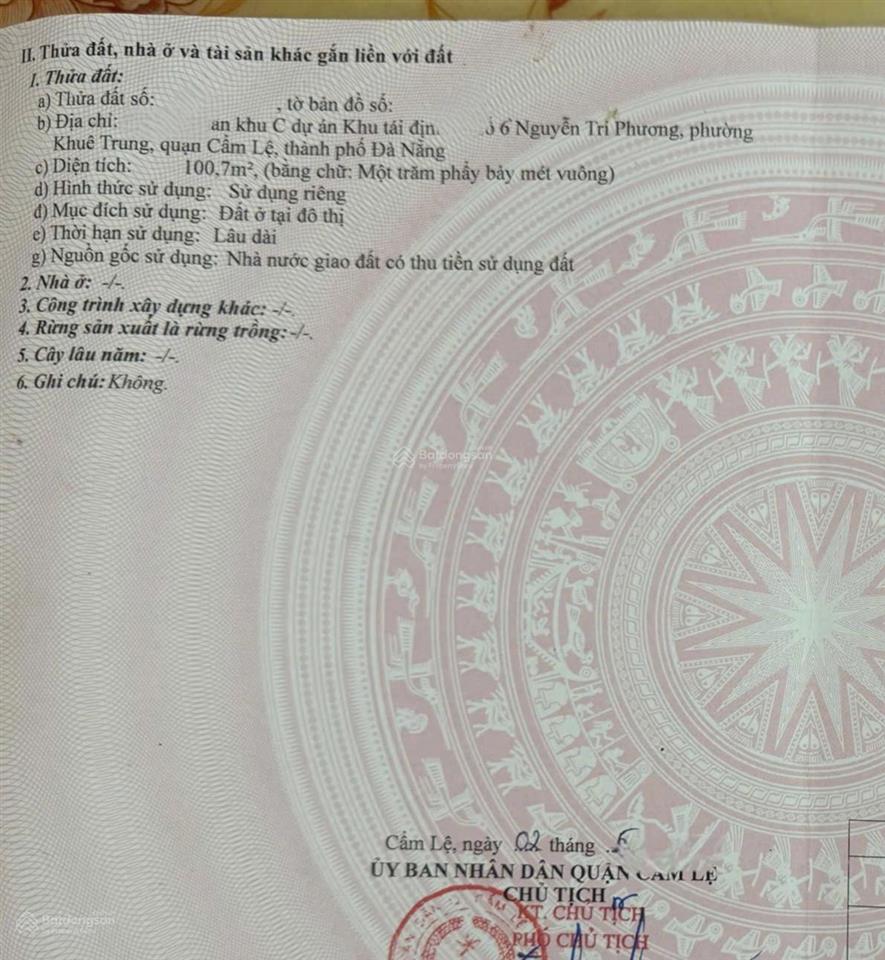 II. Thửa đất, nhà ở và tài sản khác gắn liền với đất
1. Thửa đất:
a) Thửa đất số: , tờ bản đồ số:
b) Địa chỉ: khu C dự án Khu tái 6 Nguyễn Tri Phương, phường
Khuê Trung, quận Cẩm Lệ, thành phố Đà Nẵng
c) Diện tích: 100,7m², (bằng chữ: Một trăm phẩy bảy mét vuông)
d) Hình thức sử dụng: Sử dụng riêng
đ) Mục đích sử dụng: Đất ở tại đô thị
e) Thời hạn sử dụng: Lâu dài
g) Nguồn gốc sử dụng: Nhà nước giao đất có thu tiền sử dụng đất
2. Nhà ở: -/-.
3. Công trình xây dựng khác: -/-.
4. Rừng sản xuất là rừng trồng: -/-.
5. Cây lâu năm: -/-.
6. Ghi chú: Không.
Batdongsan
by PropertyGuru
Cẩm Lệ, ngày 02 tháng
ỦY BAN NHÂN DÂN QUẬN CẨM LỆ
CHỦ TỊCH
KT. CHỦ TỊCH
PHÓ CHỦ TỊCH
Batdongsan